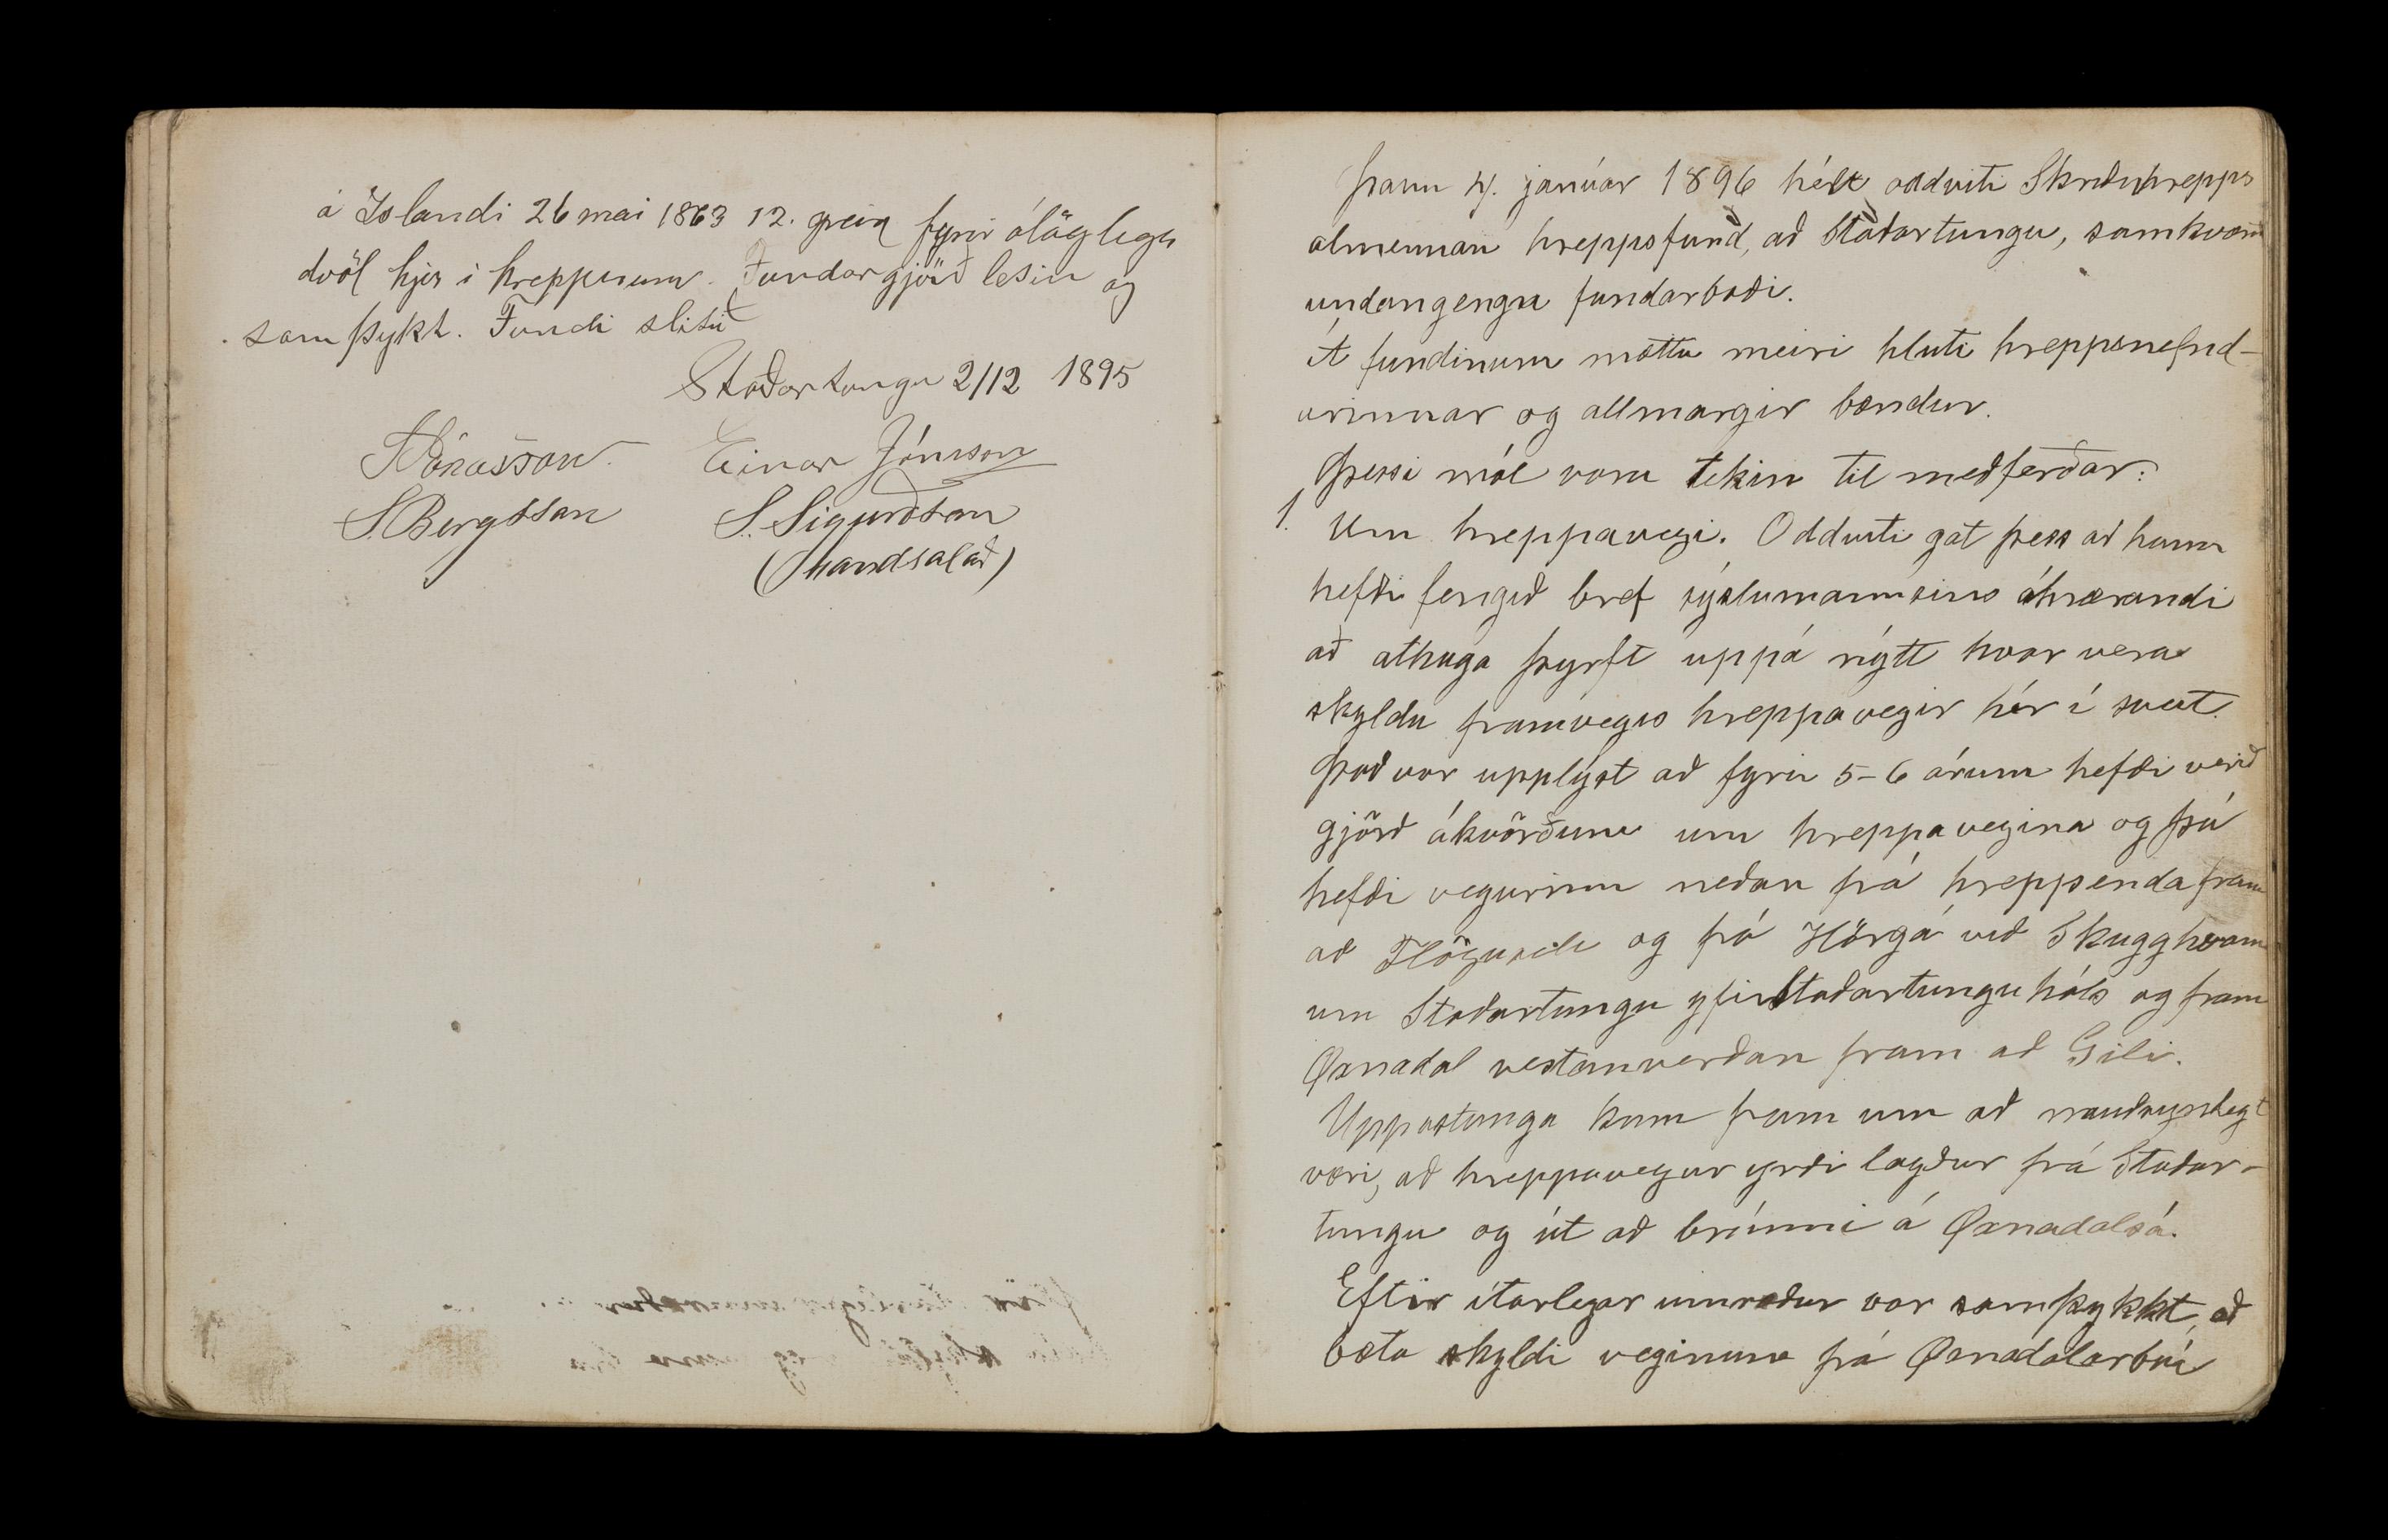 á Islandi 26 mai 1863 12. grein fyrir ólöglega
dvöl hjer i hreppnum. Fundargjörð lesin og
samþykt. Fundi slitið
Staðartungu 2/12 1895
Einar Jónsson
S. Bergsson S. Sigurðsson
(handsalað)
Þann 4. janúar 1896 hélt oddviti Skriðuhrepps
almennan hreppsfund, að Staðartungu, samkvæmt
undangengnu fundarboði.
Á fundinum mættu meiri hluti hreppsnefnd-
arinnar og allmargir bændur.
Þessi mál voru tekin til meðferðar:
1. Um hreppavegi. Oddviti gat þess að hann
hefði fengið bref sýslumannsins áhrærandi
að athuga þyrft uppá nýtt hvar vera
skyldu framvegis hreppavegir hér í sveit.
Það var upplýst að fyrir 5-6 árum hefði verið
gjörð ákvörðun um hreppavegina og þá
hefði vegurinn neðan frá hreppsenda fram
að Flögu og frá Hörgá við Skugghvam
um Staðartungu yfir Staðartunguháls og fram
Øxnadal vestanverðan fram að Gili.
Uppastunga kom fram um að nauðsynlegt
væri, að hreppavegur yrði lagður frá Staðar-
tungu og út að brúnni á Øxnadalsá.
Eftir ítarlegar umræður var samþykkt, að
bæta skyldi veginum frá Øxnadalarbrú